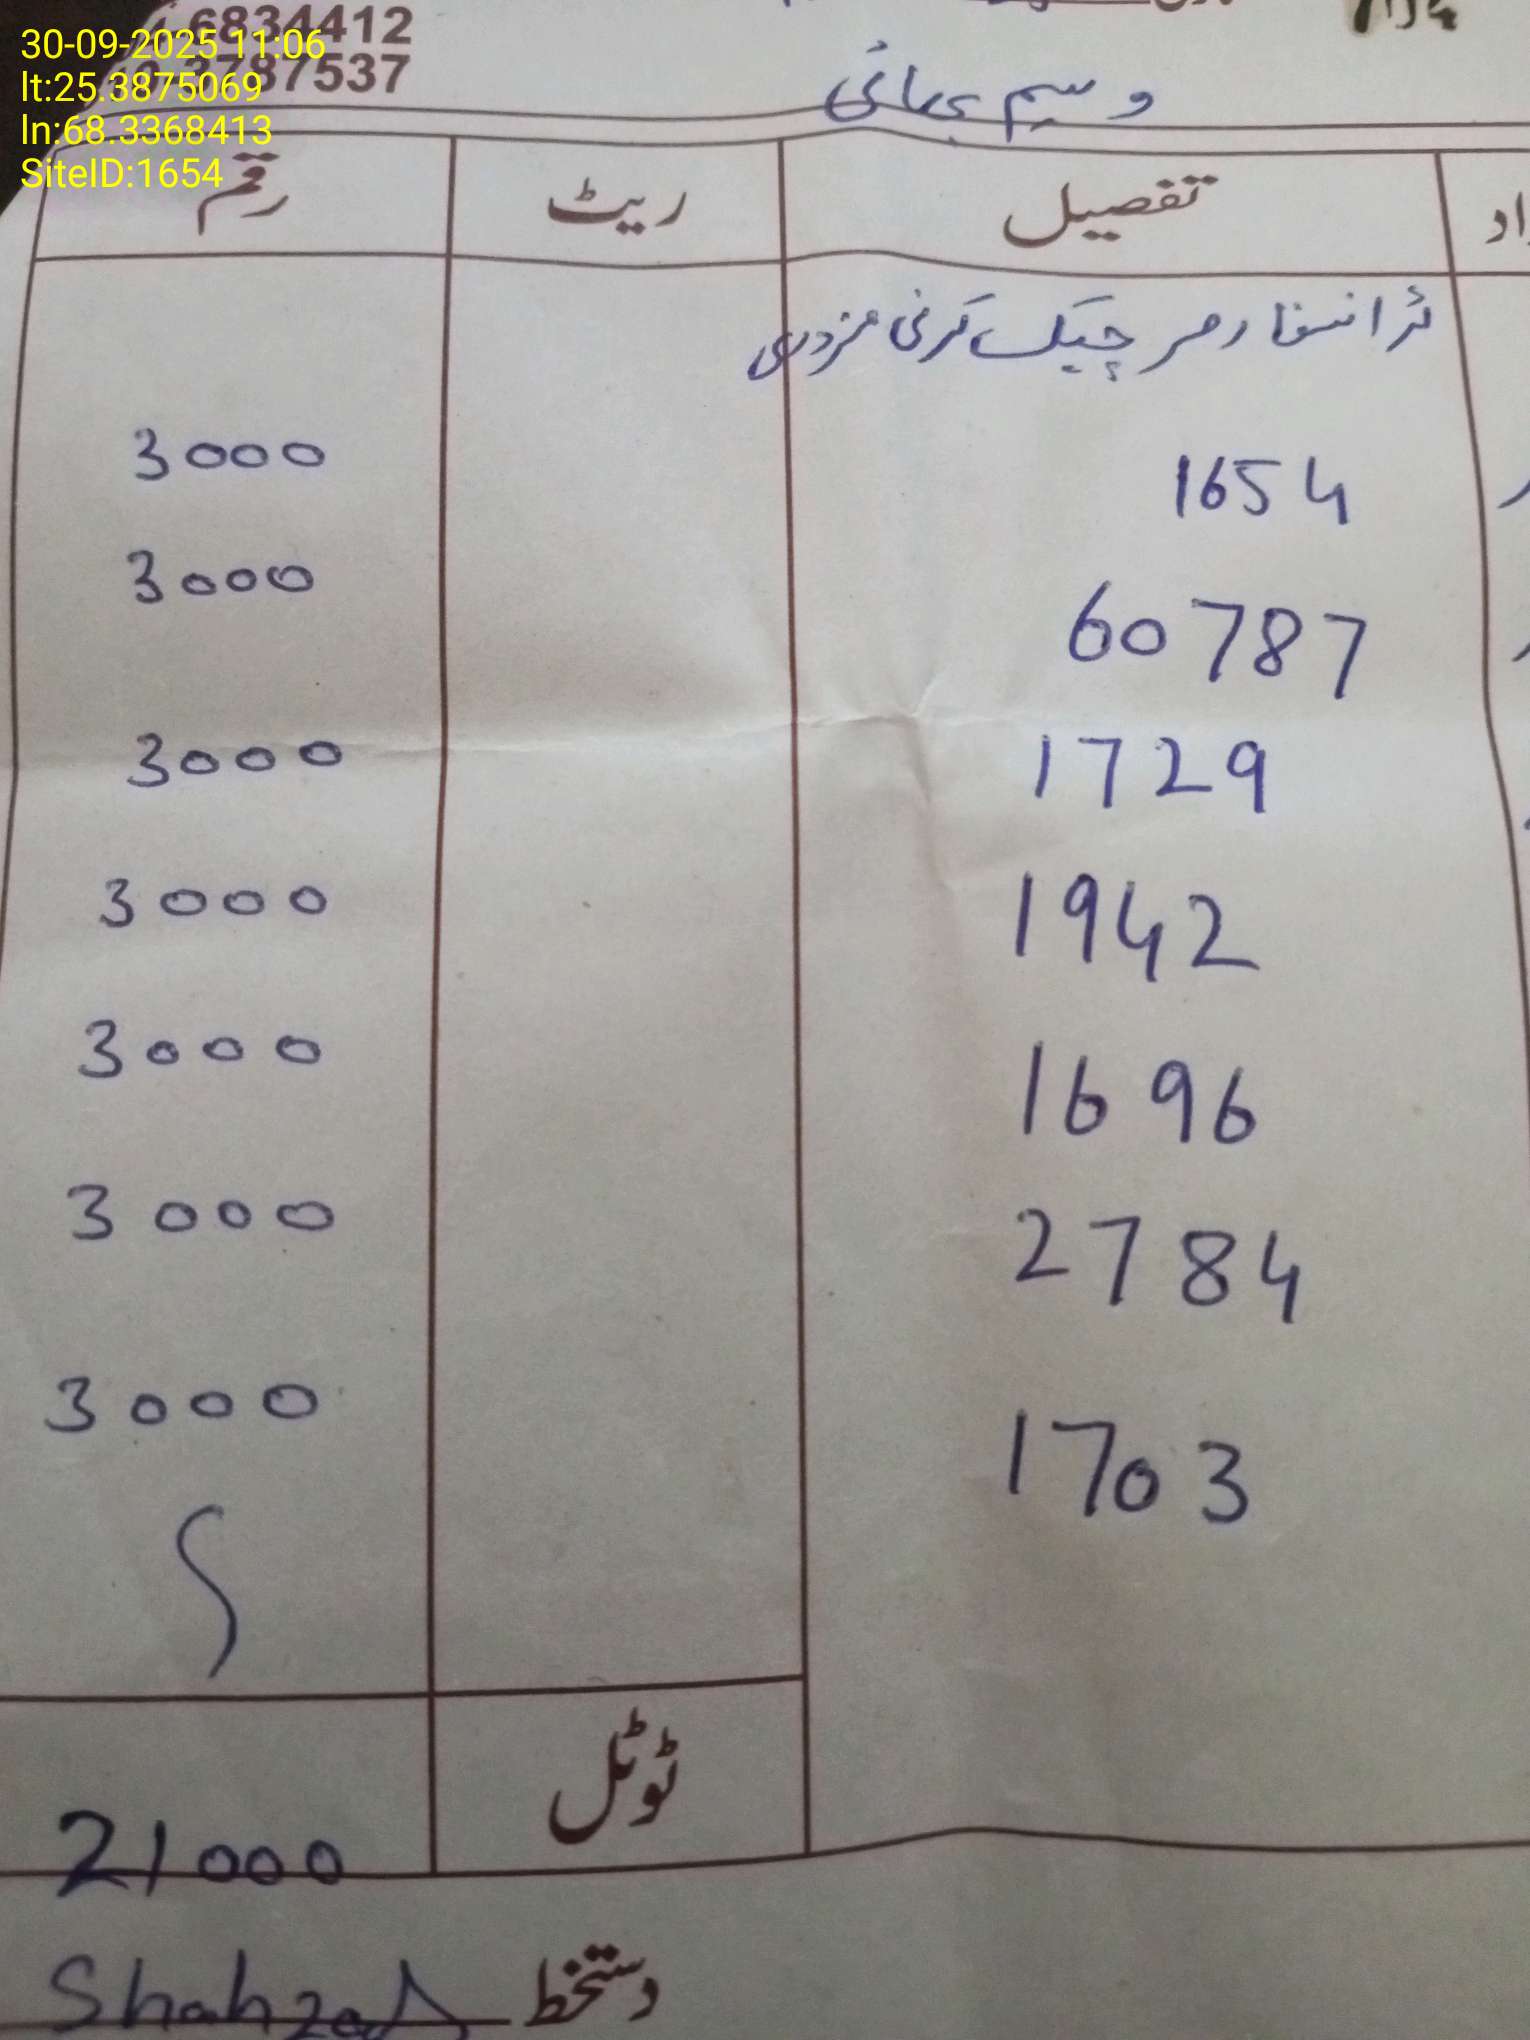 30-09-2025 11:06
lt:25.3875069
ln:68.3368413
SiteID:1654
6834412
3787537
وسیم بھائی
تفصیل ریٹ رقم
ٹرانسفارمر چیک کرنی مزدوری
1654 3000
60787 3000
1729 3000
1942 3000
1696 3000
2784 3000
1703 3000
ٹوٹل 21000
دستخط Shahzad